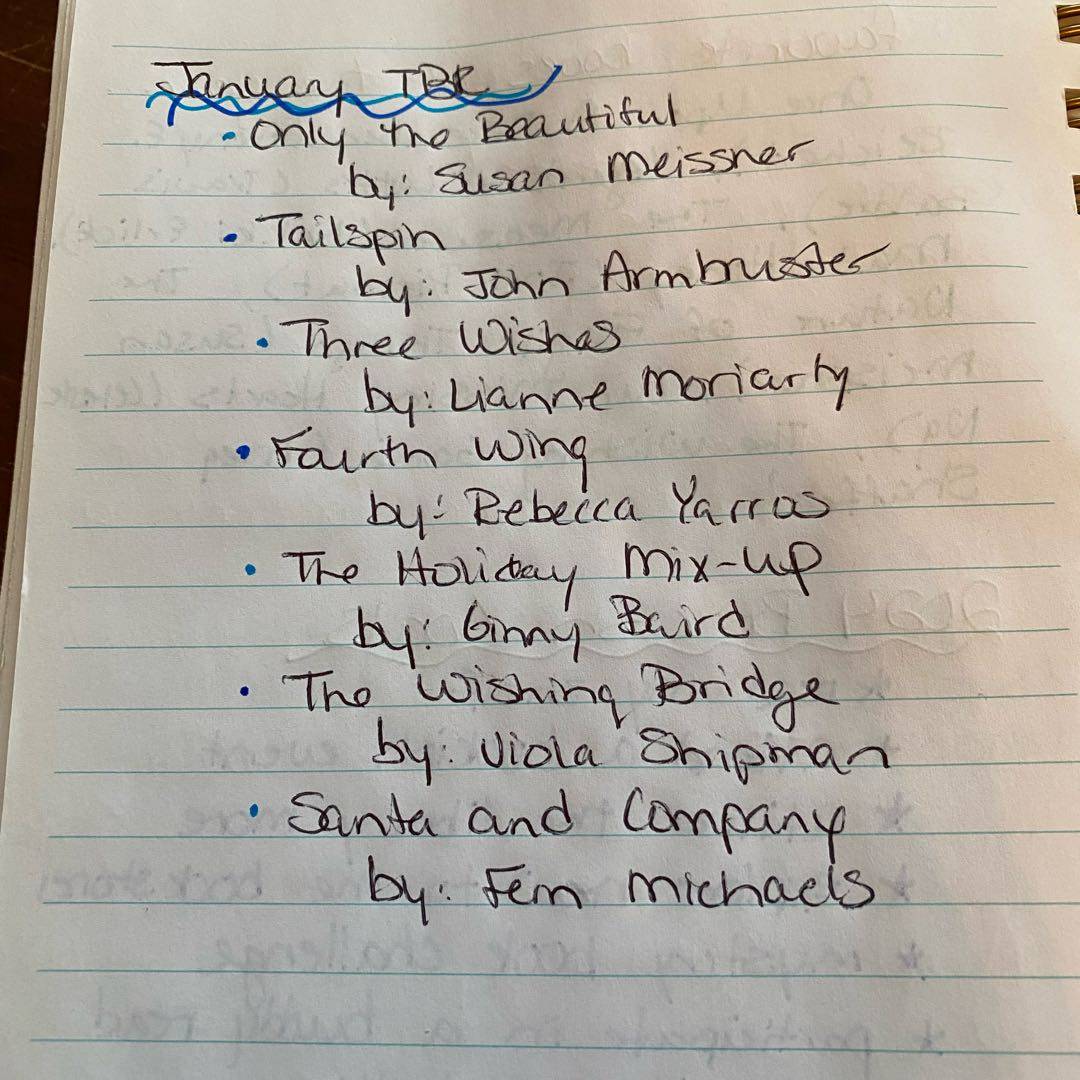 January TBR
• Only the Beautiful
by: Susan Meissner
• Tailspin
by: John Armbruster
• Three Wishes
by: Lianne Moriarty
• Fourth Wing
by: Rebecca Yarros
• The Holiday Mix-up
by: Ginny Baird
• The Wishing Bridge
by: Viola Shipman
• Santa and Company
by: Fern Michaels